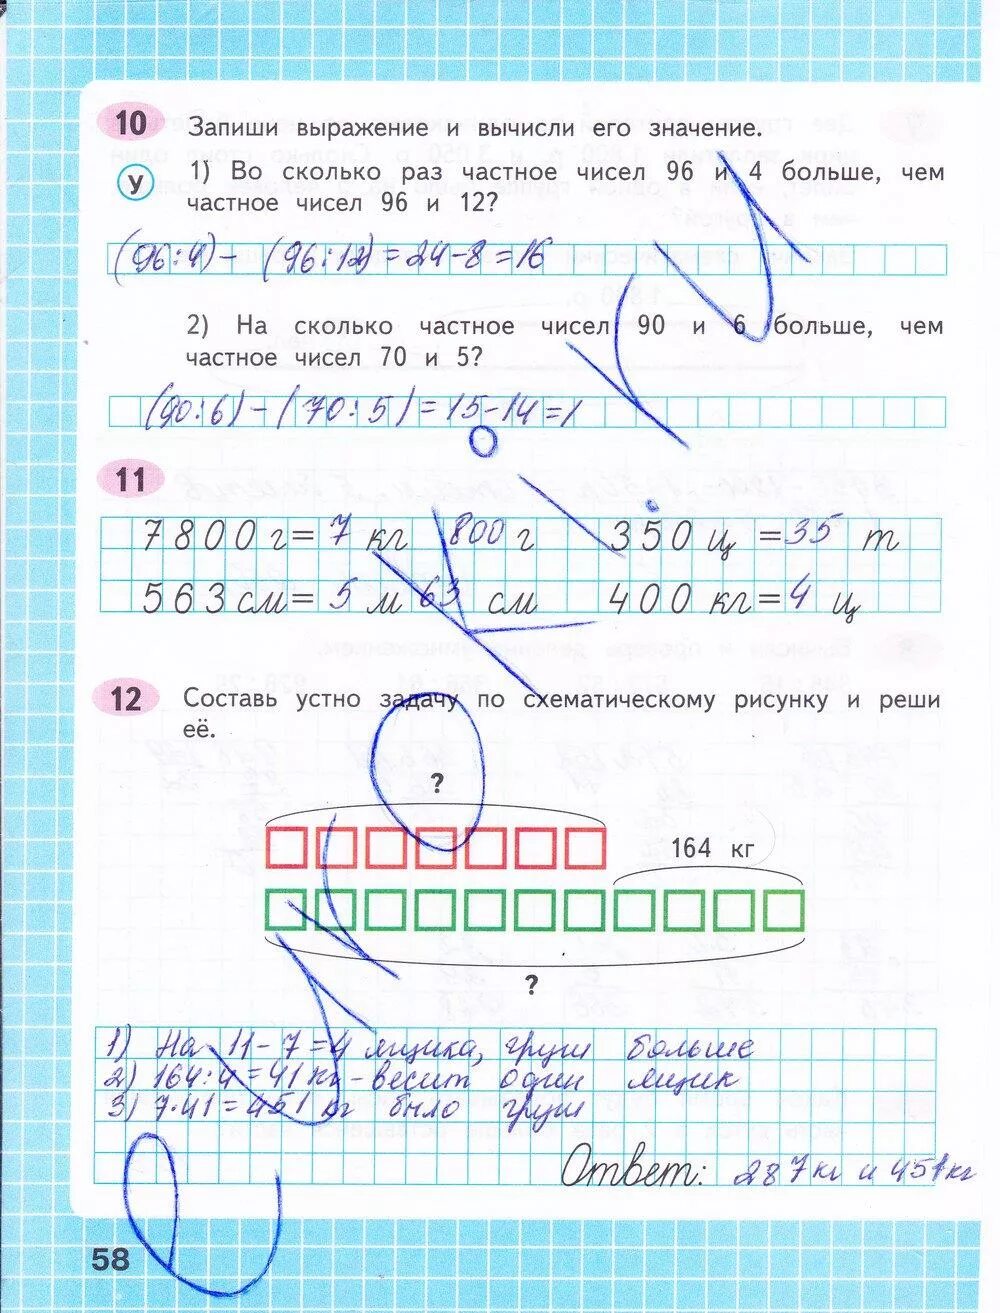 10 Запиши выражение и вычисли его значение.
У 1) Во сколько раз частное чисел 96 и 4 больше, чем
частное чисел 96 и 12?
(96:4) - (96:12) = 24-8 = 16
2) На сколько частное чисел 90 и 6 больше, чем
частное чисел 70 и 5?
(90:6) - (70:5) = 15-14 = 1
11
7800 г = 7 кг 800 г 350 ц = 35 т
563 см = 5 м 63 см 400 кг = 4 ц
12 Составь устно задачу по схематическому рисунку и реши
её.
?
164 кг
?
1) На 11-7=4 ящика, груш больше
2) 164:4=41 кг - весит один ящик
3) 7·41=451 кг было груш
Ответ: 287 кг и 451 кг
58